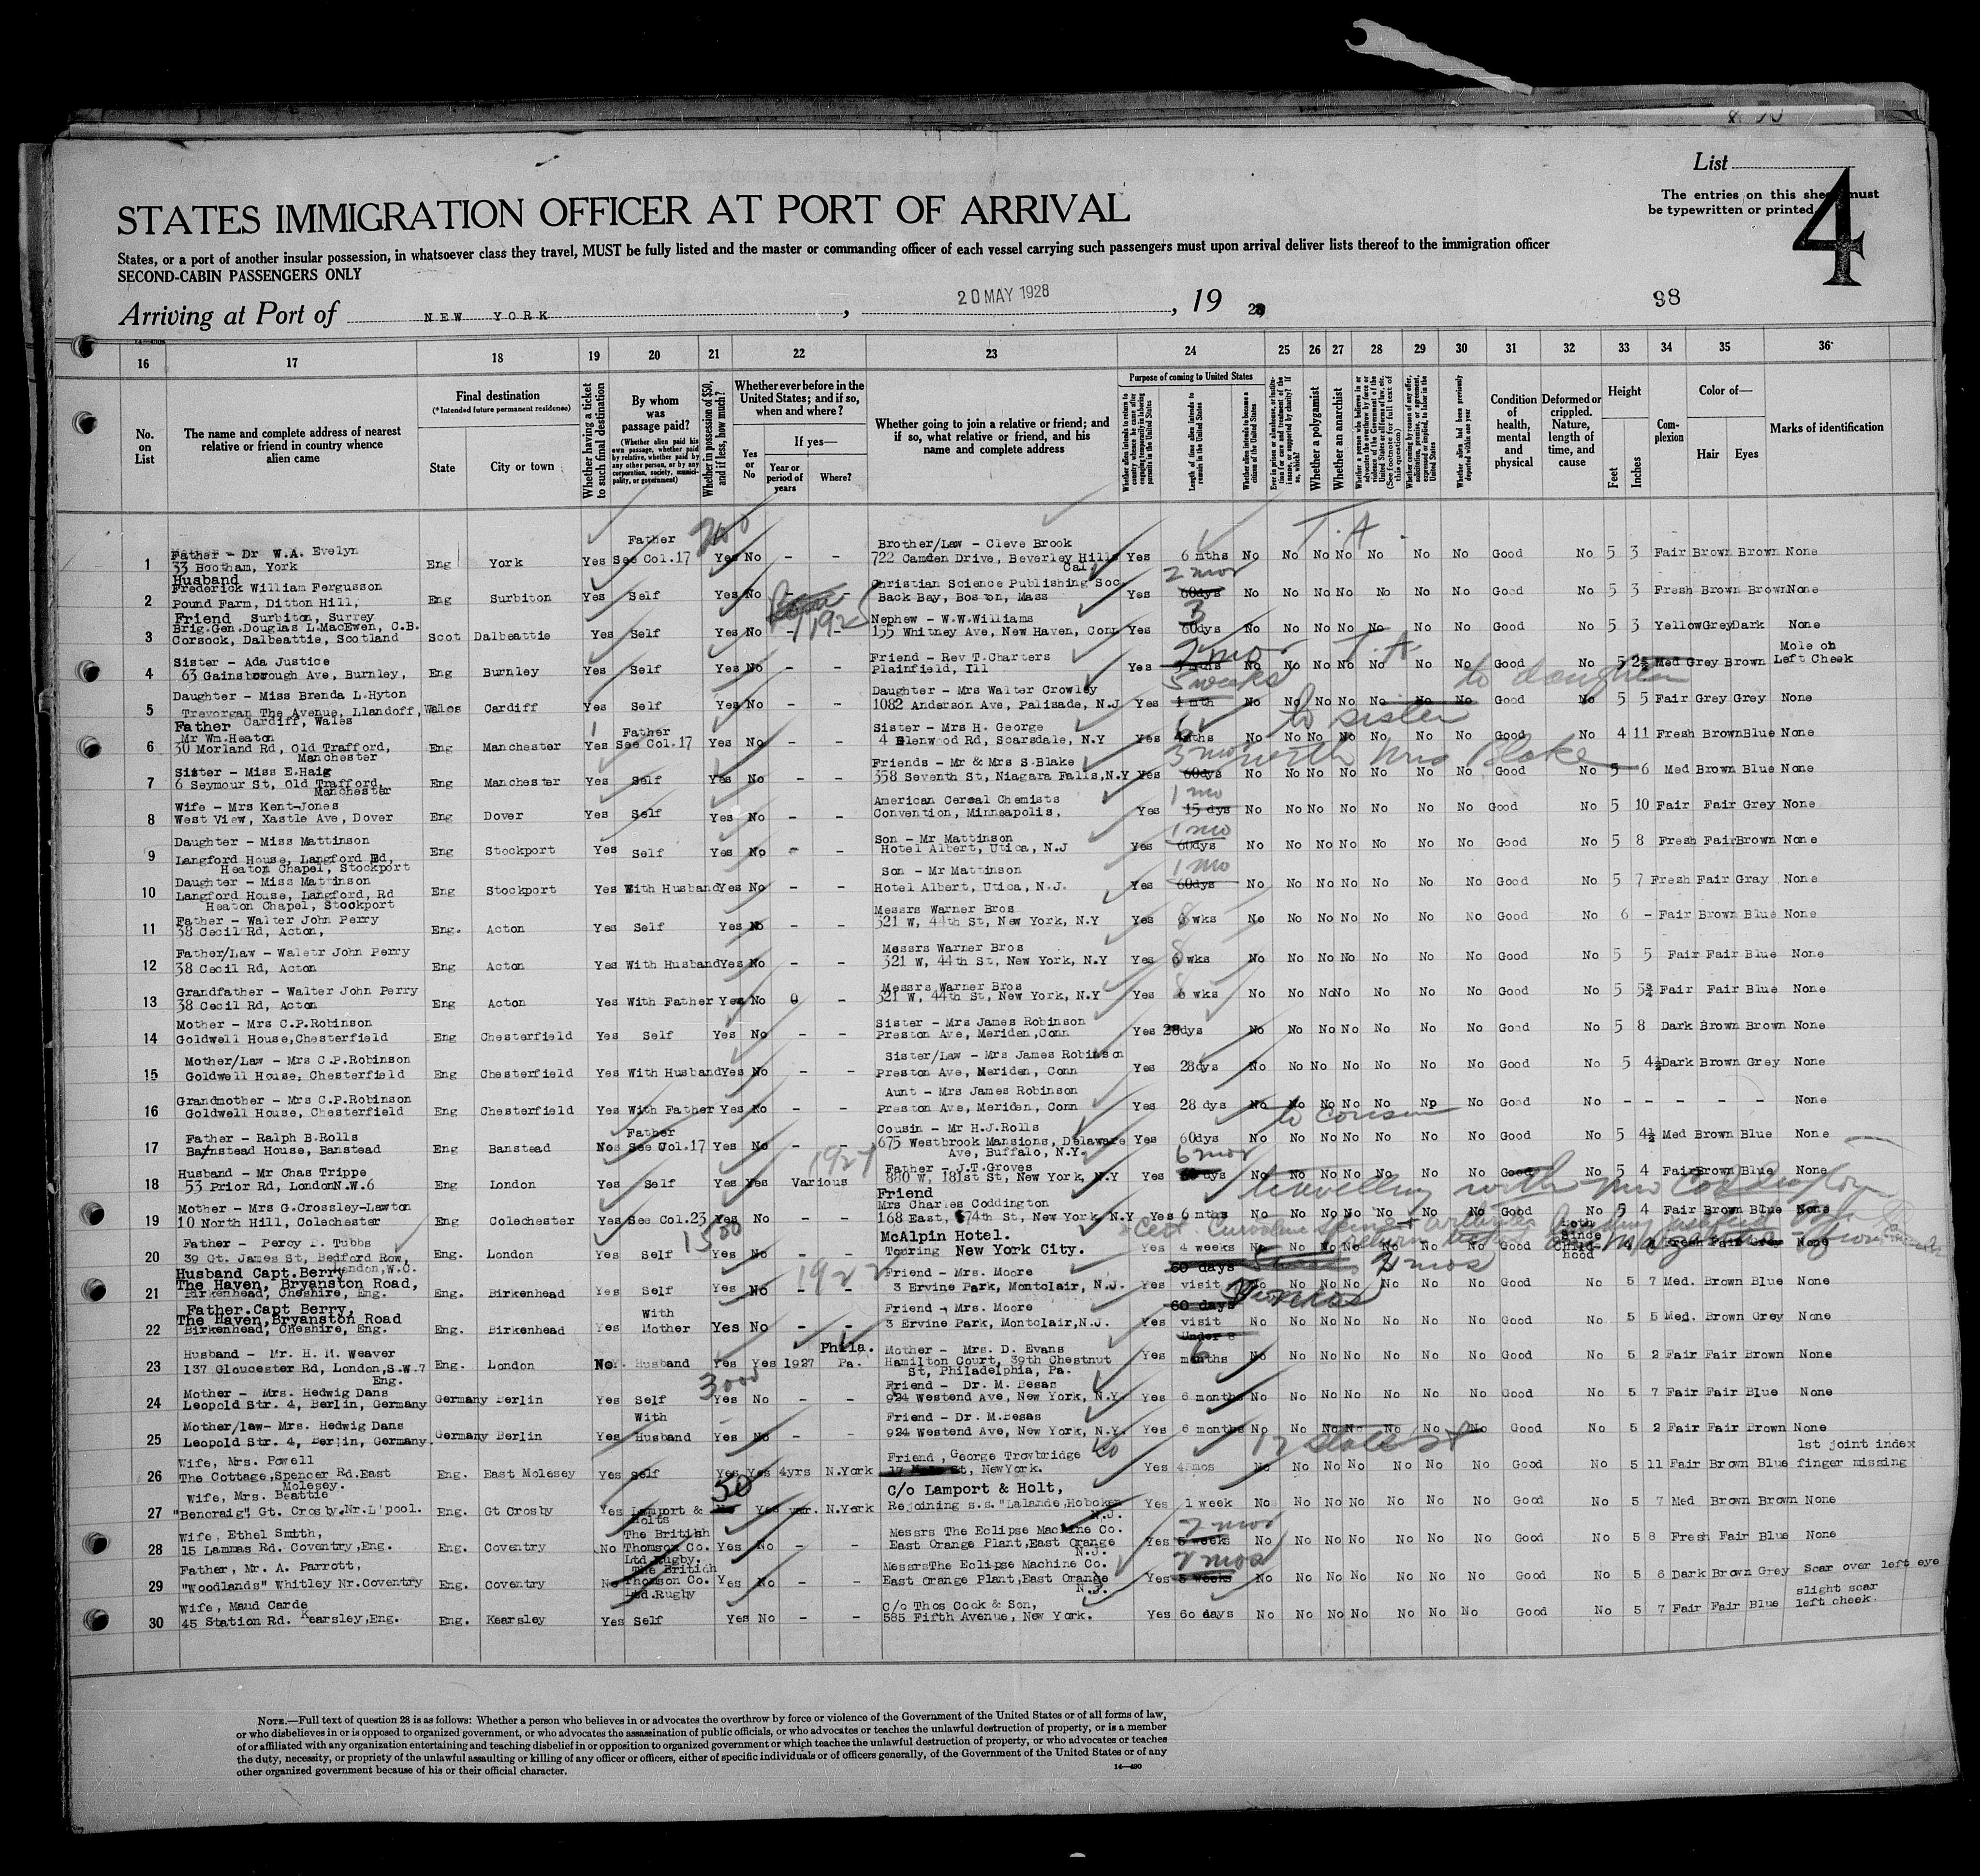 List
The entries on this sheet must
be typewritten or printed
4
STATES IMMIGRATION OFFICER AT PORT OF ARRIVAL
States, or a port of another insular possession, in whatsoever class they travel, MUST be fully listed and the master or commanding officer of each vessel carrying such passengers must upon arrival deliver lists thereof to the immigration officer
SECOND-CABIN PASSENGERS ONLY
Arriving at Port of NEW YORK, 20 MAY 1928, 19 28
98
16 17 18 19 20 21 22 23 24 25 26 27 28 29 30 31 32 33 34 35 36
No. on List
The name and complete address of nearest relative or friend in country whence alien came
Final destination
(*Intended future permanent residence)
State
City or town
Whether having a ticket to such final destination
By whom was passage paid?
(Whether alien paid his own passage, whether paid by relative, whether paid by any other person, or by any corporation, society, municipality, or government)
Whether in possession of $50, and if less, how much?
Whether ever before in the United States; and if so, when and where?
Yes or No
If yes—
Year or period of years
Where?
Whether going to join a relative or friend; and if so, what relative or friend, and his name and complete address
Purpose of coming to United States
Length of time alien intends to remain in the United States
Whether alien intends to become a citizen of the United States
Whether a polygamist
Whether an anarchist
Condition of health, mental and physical
Deformed or crippled. Nature, length of time, and cause
Height
Feet
Inches
Complexion
Color of—
Hair
Eyes
Marks of identification
200
T.A.
1 Father - Dr W.A. Evelyn
33 Bootham, York Eng York Yes Father See Col.17 Yes No - - Brother/Law - Cleve Brook
722 Camden Drive, Beverley Hills Cal Yes 6 mths No No No No No No No Good No 5 3 Fair Brown Brown None
2 Husband
Frederick William Fergusson
Pound Farm, Ditton Hill,
Surbiton, Surrey Eng Surbiton Yes Self Yes No - - Christian Science Publishing Soc
Back Bay, Boston, Mass Yes 60dys 2 mos No No No No No No No Good No 5 3 Fresh Brown Brown None
3 Friend
Brig.Gen.Douglas L.MacEwen, C.B.
Corsock, Dalbeattie, Scotland Scot Dalbeattie Yes Self Yes No 1925 Nephew - W.W.Williams
155 Whitney Ave, New Haven, Conn Yes 60dys 3 No No No No No No No Good No 5 3 Yellow Grey Dark None
4 Sister - Ada Justice
63 Gainsborough Ave, Burnley, Eng Burnley Yes Self Yes No - - Friend - Rev T.Charters
Plainfield, Ill Yes 2 mo. T.A. No No No No No No No Good No 5 2½ Med Grey Brown Mole on Left Cheek
5 Daughter - Miss Brenda L.Hyton
Trevorgan The Avenue, Llandoff,
Cardiff, Wales Wales Cardiff Yes Self Yes No - - Daughter - Mrs Walter Crowley
1082 Anderson Ave, Palisade, N.J Yes 1 mth 5 weeks to daughter No No No No No No No Good No 5 5 Fair Grey Grey None
6 Father
Mr Wm.Heaton
30 Morland Rd, Old Trafford,
Manchester Eng Manchester Yes Father See Col.17 Yes No - - Sister - Mrs H. George
4 Elenwood Rd, Scarsdale, N.Y Yes 6 mths to sister No No No No No No No Good No 4 11 Fresh Brown Blue None
7 Sister - Miss E.Haig
6 Seymour St, Old Trafford,
Manchester Eng Manchester Yes Self Yes No - - Friends - Mr & Mrs S.Blake
358 Seventh St, Niagara Falls,N.Y Yes 60dys 3 mos with Mrs Blake No No No No No No No Good No 5 6 Med Brown Blue None
8 Wife - Mrs Kent-Jones
West View, Xastle Ave, Dover Eng Dover Yes Self Yes No - - American Cereal Chemists
Convention, Minneapolis, Yes 15 dys 1 mo No No No No No No No Good No 5 10 Fair Fair Grey None
9 Daughter - Miss Mattinson
Langford House, Langford Rd,
Heaton Chapel, Stockport Eng Stockport Yes Self Yes No - - Son - Mr Mattinson
Hotel Albert, Utica, N.J Yes 60dys 1 mo No No No No No No No Good No 5 8 Fresh Fair Brown None
10 Daughter - Miss Mattinson
Langford House, Langford, Rd
Heaton Chapel, Stockport Eng Stockport Yes With Husband Yes No - - Son - Mr Mattinson
Hotel Albert, Utica, N.J. Yes 60dys 1 mo No No No No No No No Good No 5 7 Fresh Fair Gray None
11 Father - Walter John Perry
38 Cecil Rd, Acton, Eng. Acton Yes Self Yes No - - Messrs Warner Bros
321 W, 44th St, New York, N.Y Yes 8 wks No No No No No No No Good No 6 - Fair Brown Blue None
12 Father/Law - Waletr John Perry
38 Cecil Rd, Acton Eng Acton Yes With Husband Yes No - - Messrs Warner Bros
321 W, 44th St, New York, N.Y Yes 6 wks 8 No No No No No No No Good No 5 5 Fair Fair Blue None
13 Grandfather - Walter John Perry
38 Cecil Rd, Acton Eng Acton Yes With Father Yes No 0 - Messrs Warner Bros
321 W, 44th St, New York, N.Y Yes 6 wks 8 No No No No No No No Good No 5 5¾ Fair Fair Blue None
14 Mother - Mrs C.P.Robinson
Goldwell House,Chesterfield Eng Chesterfield Yes Self Yes No - - Sister - Mrs James Robinson
Preston Ave, Meriden,Conn Yes 28dys No No No No No No No Good No 5 8 Dark Brown Brown None
15 Mother/Law - Mrs C.P.Robinson
Goldwell House, Chesterfield Eng Chesterfield Yes With Husband Yes No - - Sister/Law - Mrs James Robinson
Preston Ave, Meriden, Conn Yes 28dys No No No No No No No Good No 5 4½ Dark Brown Grey None
16 Grandmother - Mrs C.P.Robinson
Goldwell House, Chesterfield Eng Chesterfield Yes With Father Yes No - - Aunt - Mrs James Robinson
Preston Ave, Meriden, Conn Yes 28 dys No No No No No No No Good No - - - - - None
17 Father - Ralph B.Rolls
Barnstead House, Banstead Eng Banstead No Father See Col.17 Yes No - - Cousin - Mr H.J.Rolls
675 Westbrook Mansions, Delaware
Ave, Buffalo, N.Y. Yes 60dys to cousin No No No No No No No Good No 5 4½ Med Brown Blue None
18 Husband - Mr Chas Trippe
53 Prior Rd, London N.W.6 Eng London Yes Self Yes Yes Various 1927 Father - J.T.Groves
880 W, 181st St, New York, N.Y Yes dys 6 mos No No No No No No No Good No 5 4 Fair Brown Blue None
19 Mother - Mrs G.Crossley-Lawton
10 North Hill, Colechester Eng Colechester Yes See Col.23 Yes No - - Friend
Mrs Charles Coddington
168 East, 74th St, New York, N.Y Yes 6 mths travelling with Mrs Coddington No No No No No No No Good No 5 4 Fair Brown Blue None
20 Father - Percy F. Tubbs
39 Gt. James St, Bedford Row,
London,W.C. Eng. London Yes Self 1500 Yes No - - McAlpin Hotel.
Touring New York City. Yes 4 weeks No No No Good Both Since Childhood Fresh Fair Grey None
21 Husband Capt.Berry
The Haven, Bryanston Road,
Birkenhead, Cheshire, Eng. Eng. Birkenhead Yes Self Yes No 1922 Friend - Mrs. Moore
3 Ervine Park, Montclair, N.J. Yes 60 days visit 2 mos No No No No No No No Good No 5 7 Med. Brown Blue None
22 Father.Capt Berry,
The Haven,Bryanston Road
Birkenhead, Cheshire, Eng. Eng. Birkenhead Yes With Mother Yes No - - Friend - Mrs. Moore
3 Ervine Park, Montclair,N.J. Yes 60 days visit No No No No No No No Good No 5 5 Med. Brown Grey None
23 Husband - Mr. H. M. Weaver
137 Gloucester Rd, London,S.W.7
Eng. Eng. London No Husband Yes Yes 1927 Phila. Pa. Mother - Mrs. D. Evans
Hamilton Court, 39th Chestnut
St, Philadelphia, Pa. Yes Under 6 months No No No No No No No Good No 5 2 Fair Fair Brown None
24 Mother - Mrs. Hedwig Dans
Leopold Str. 4, Berlin, Germany Germany Berlin Yes Self 3000 Yes No - - Friend - Dr. M. Besas
924 Westend Ave, New York, N.Y. Yes 6 months No No No No No No No Good No 5 7 Fair Fair Blue None
25 Mother/law- Mrs. Hedwig Dans
Leopold Str. 4, Berlin, Germany. Germany Berlin Yes With Husband Yes No - - Friend - Dr. M.Besas
924 Westend Ave, New York, N.Y. Yes 6 months No No No No No No No Good No 5 2 Fair Fair Brown None
26 Wife, Mrs. Powell
The Cottage,Spencer Rd.East
Molesey. Eng. East Molesey Yes Self Yes Yes 4yrs N.York Friend, George Trowbridge
17 St, NewYork. 17 State St Yes 4 mos No No No No No No No Good No 5 11 Fair Brown Blue 1st joint index finger missing
27 Wife, Mrs. Beattie
"Bencraig", Gt. Crosby.Nr.L'pool. Eng. Gt Crosby Yes Lamport & Holts 50 Yes var. N.York C/o Lamport & Holt,
Rejoining s.s. "Lalande, Hoboken N.J. Yes 1 week No No No No No No No Good No 5 7 Med Brown Brown None
28 Wife, Ethel Smith,
15 Lammas Rd. Coventry,Eng. Eng. Coventry No The British Thomson Co. Ltd.Rugby. Yes No - - Messrs The Eclipse Machine Co.
East Orange Plant,East Orange N.J. Yes 5 weeks 2 mos No No No No No No No Good No 5 8 Fresh Fair Blue None
29 Father, Mr. A. Parrott,
"Woodlands" Whitley Nr.Coventry Eng. Coventry No The British Thomson Co. Ltd.Rugby Yes No - - MessrsThe Eclipse Machine Co.
East Orange Plant,East Orange N.J. Yes 5 weeks 2 mos No No No No No No No Good No 5 6 Dark Brown Grey Scar over left eye
30 Wife, Maud Carde
45 Station Rd. Kearsley,Eng. Eng. Kearsley Yes Self Yes No - - C/o Thos Cook & Son,
585 Fifth Avenue, New York. Yes 60 days No No No No No No No Good No 5 7 Fair Fair Blue slight scar left cheek.
NOTE.—Full text of question 28 is as follows: Whether a person who believes in or advocates the overthrow by force or violence of the Government of the United States or of all forms of law,
or who disbelieves in or is opposed to organized government, or who advocates the assassination of public officials, or who advocates or teaches the unlawful destruction of property, or is a member
of or affiliated with any organization entertaining and teaching disbelief in or opposition to organized government or which teaches the unlawful destruction of property, or who advocates or teaches
the duty, necessity, or propriety of the unlawful assaulting or killing of any officer or officers, either of specific individuals or of officers generally, of the Government of the United States or of any
other organized government because of his or their official character.
14—490